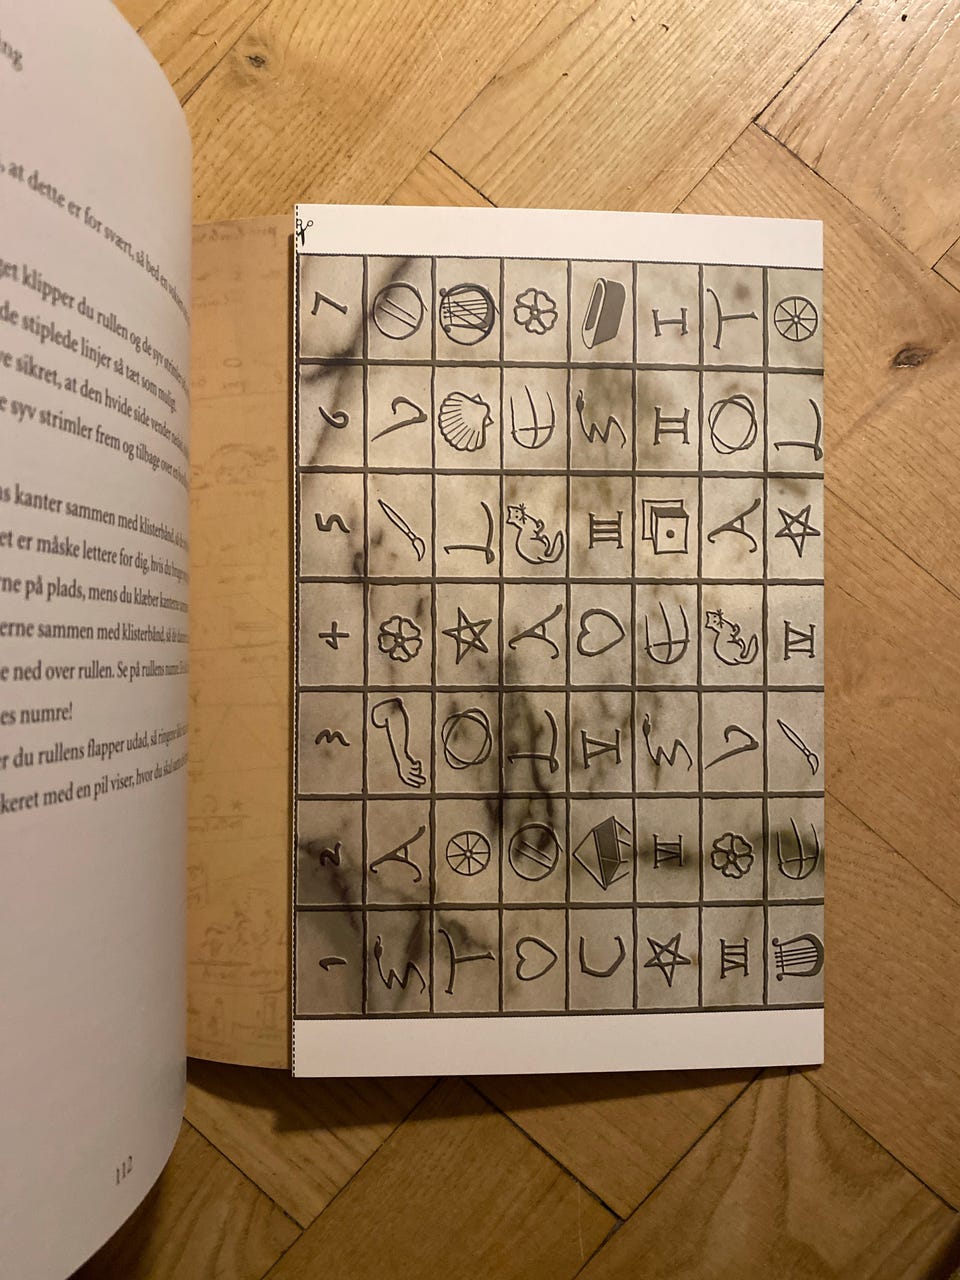 ing
at dette er for svært, så bed en voksen
get klipper du rullen og de syv strimler
de stiplede linjer så tæt som muligt.
sikret, at den hvide side vender nedad
syv strimler frem og tilbage over en
kanter sammen med klisterbånd, så de
et er måske lettere for dig, hvis du bruger
ne på plads, mens du klæber kanterne
erne sammen med klisterbånd, så de danner
e ned over rullen. Se på rullens numre.
es numre!
er du rullens flapper udad, så ringene ikke
keret med en pil viser, hvor du skal
112
1 2 3 4 5 6 7
A V
T L
L A E
C V III
VI E II I
VII V A O T
E IV L